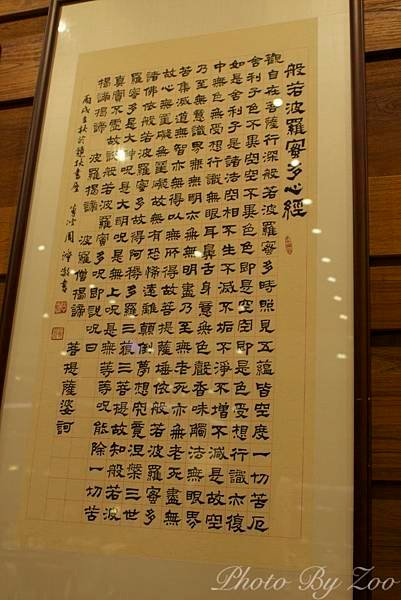 般若波羅蜜多心經
觀自在菩薩行深般若波羅蜜多時照見五蘊皆空度一切苦厄
舍利子色不異空空不異色色即是空空即是色受想行識亦復
如是舍利子是諸法空相不生不滅不垢不淨不增不減是故空
中無色無受想行識無眼耳鼻舌身意無色聲香味觸法無眼界
乃至無意識界無無明亦無無明盡乃至無老死亦無老死盡無
苦集滅道無智亦無得以無所得故菩提薩埵依般若波羅蜜多
故心無罣礙無罣礙故無有恐怖遠離顛倒夢想究竟涅槃三世
諸佛依般若波羅蜜多故得阿耨多羅三藐三菩提故知般若波
羅蜜多是大神呪是大明呪是無上呪是無等等呪能除一切苦
真實不虛故說般若波羅蜜多呪即說呪曰
揭諦揭諦 波羅揭諦 波羅僧揭諦 菩提薩婆訶
丙戌 秋於 書屋 周 書
Photo By Zoo